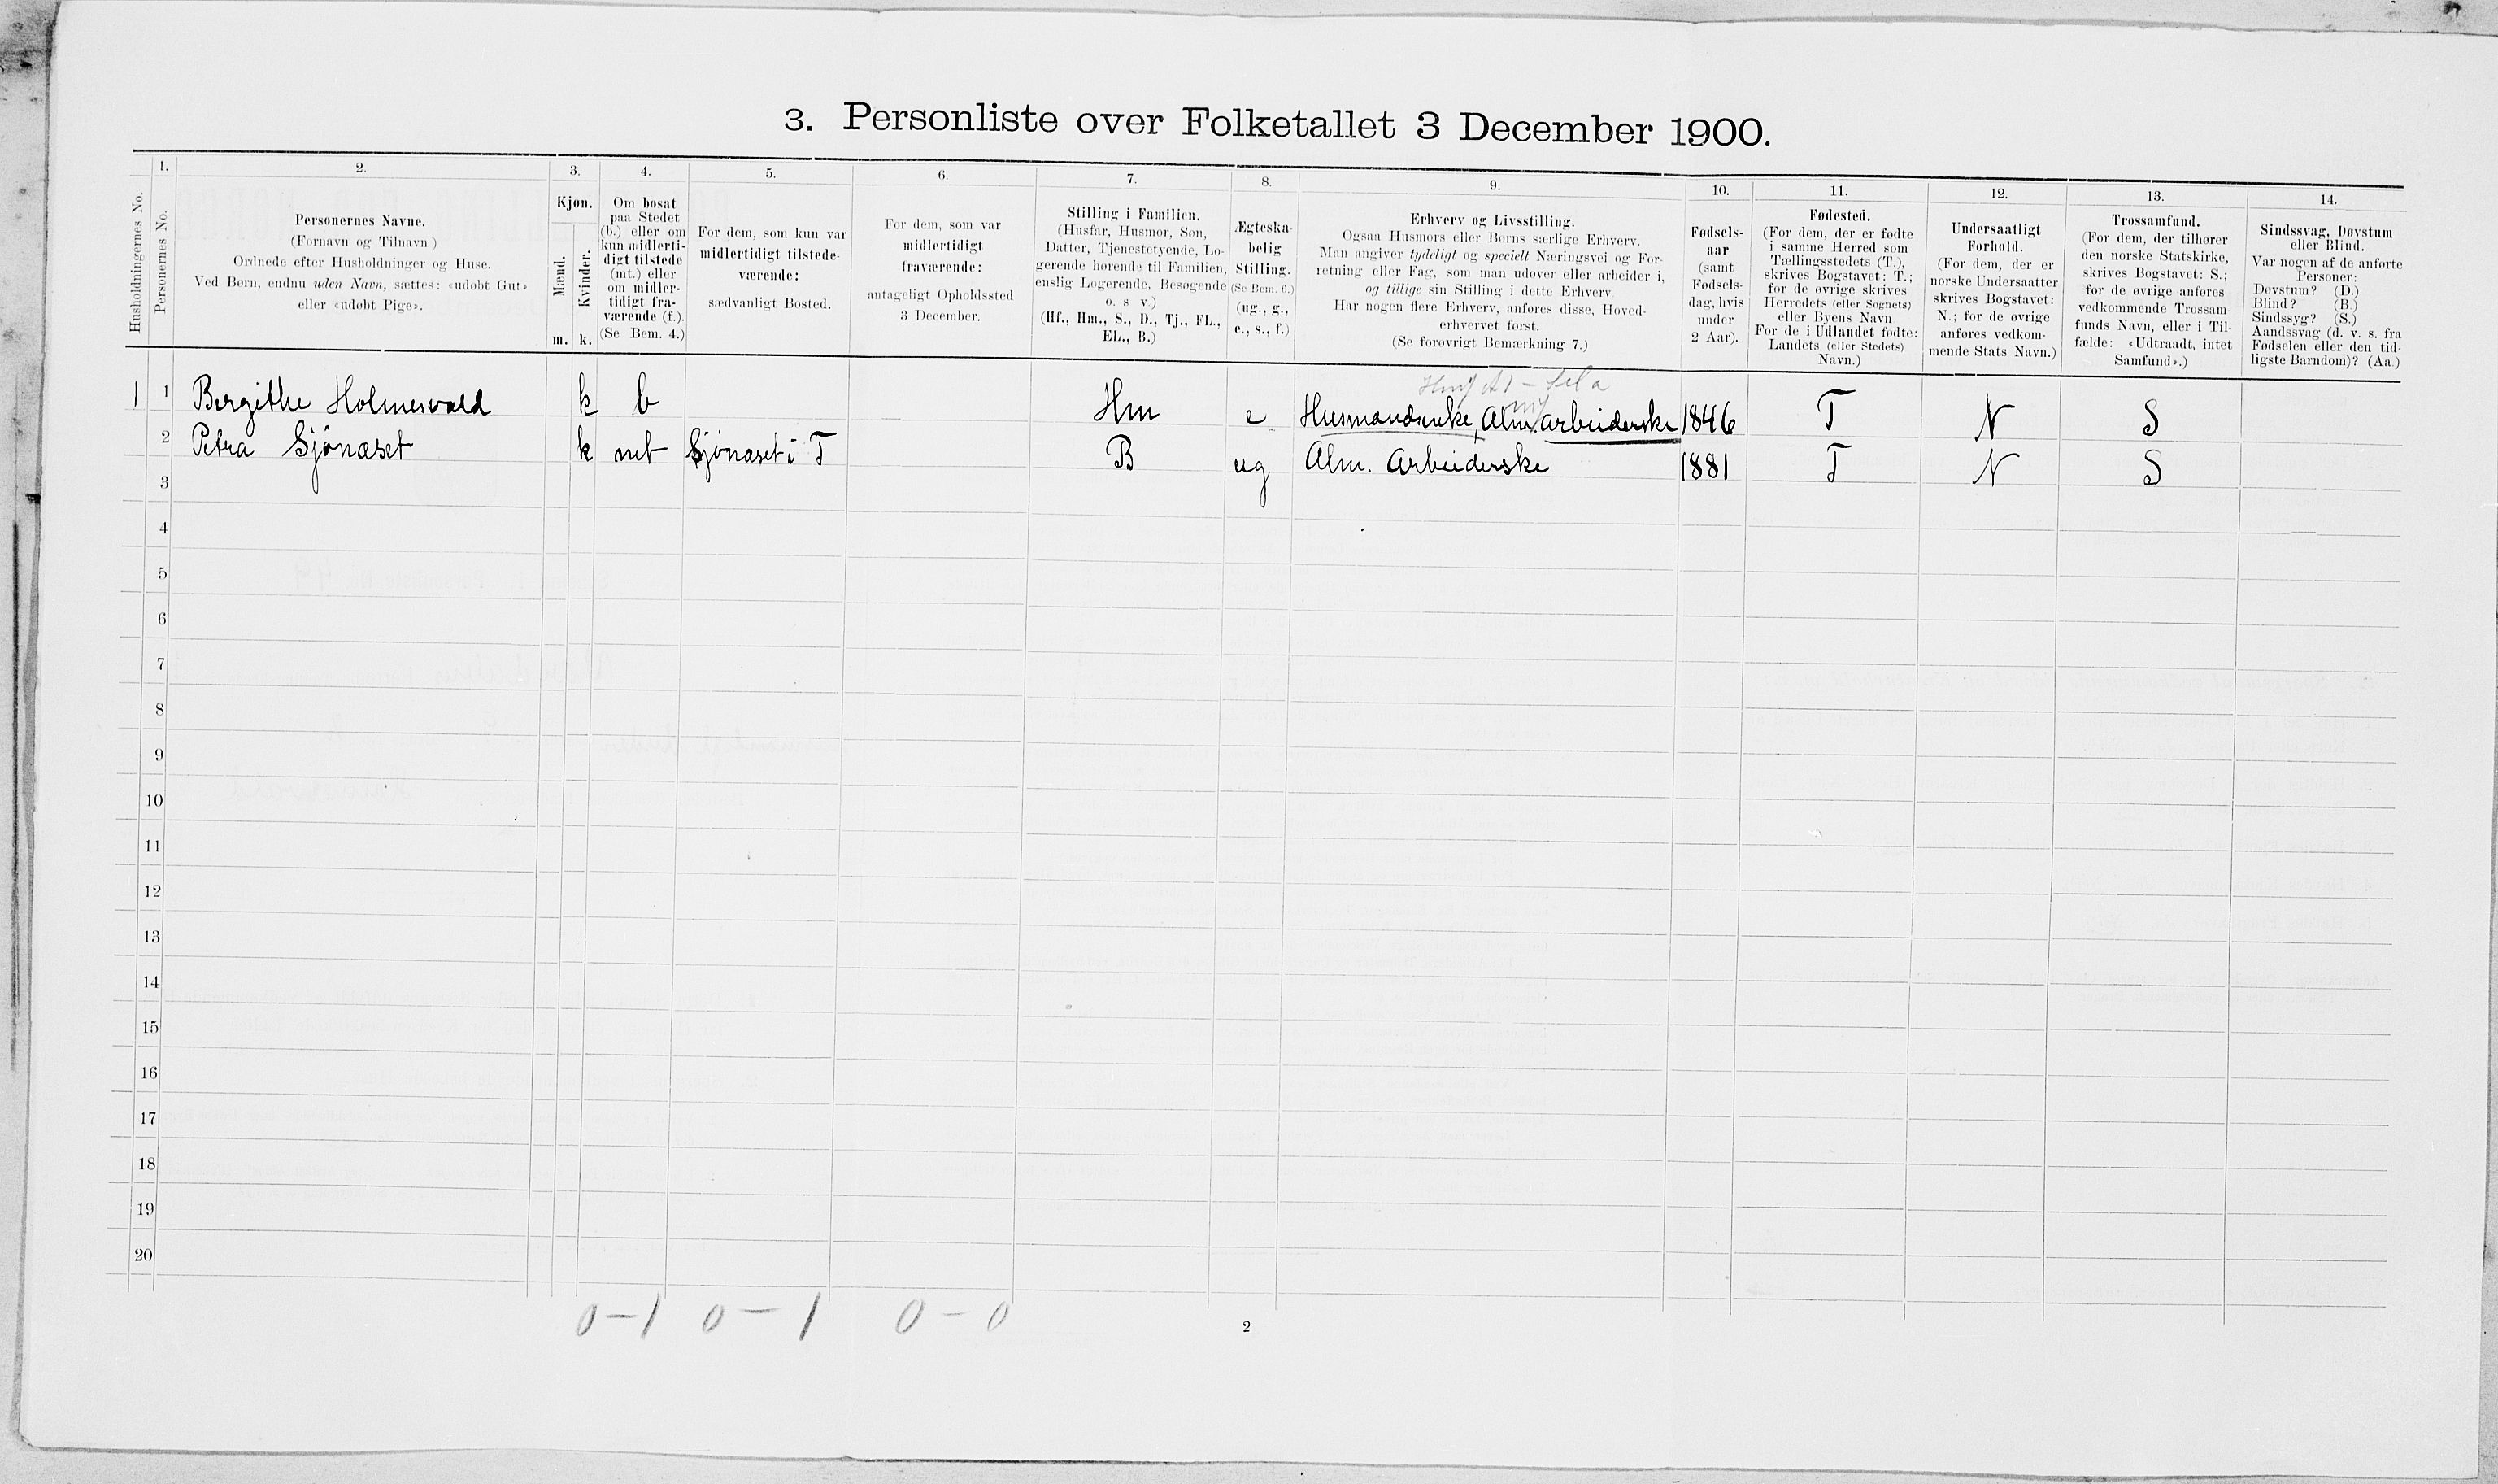 3. Personliste over Folketallet 3 December 1900.
Husholdningernes No.
1.
Personernes No.
2.
Personernes Navne.
(Fornavn og Tilnavn)
Ordnede efter Husholdninger og Huse.
Ved Børn, endnu uden Navn, sættes: «udøbt Gut»
eller «udøbt Pige».
3.
Kjøn.
Mænd.
Kvinder.
m. k.
4.
Om bosat
paa Stedet
(b.) eller om
kun midlerti-
digt tilstede
(mt.) eller
om midler-
tidigt fra-
værende (f.).
(Se Bem. 4.)
5.
For dem, som kun var
midlertidigt tilstede-
værende:
sædvanligt Bosted.
6.
For dem, som var
midlertidigt
fraværende:
antageligt Opholdssted
3 December.
7.
Stilling i Familien.
(Husfar, Husmor, Søn,
Datter, Tjenestetyende, Lo-
gerende hørende til Familien,
enslig Logerende, Besøgende
o. s v.)
(Hf., Hm., S., D., Tj., FL.,
EL., B.)
8.
Ægteska-
belig
Stilling.
(Se Bem. 6.)
(ug., g.,
e., s., f.)
9.
Erhverv og Livsstilling.
Ogsaa Husmors eller Børns særlige Erhverv.
Man angiver tydeligt og specielt Næringsvei og For-
retning eller Fag, som man udøver eller arbeider i,
og tillige sin Stilling i dette Erhverv.
Har nogen flere Erhverv, anføres disse, Hoved-
erhvervet først.
(Se forøvrigt Bemærkning 7.)
10.
Fødsels-
aar
(samt
Fødsels-
dag, hvis
under
2 Aar).
11.
Fødested.
(For dem, der er fødte
i samme Herred som
Tællingsstedets (T.),
skrives Bogstavet: T.;
for de øvrige skrives
Herredets (eller Sognets)
eller Byens Navn
For de i Udlandet fødte:
Landets (eller Stedets)
Navn.)
12.
Undersaatligt
Forhold.
(For dem, der er
norske Undersaatter
skrives Bogstavet:
N.; for de øvrige
anføres vedkom-
mende Stats Navn.)
13.
Trossamfund.
(For dem, der tilhører
den norske Statskirke,
skrives Bogstavet: S.;
for de øvrige anføres
vedkommende Trossam-
funds Navn, eller i Til-
fælde: «Udtraadt, intet
Samfund».)
14.
Sindssvag, Døvstum
eller Blind.
Var nogen af de anførte
Personer:
Døvstum? (D.)
Blind? (B.)
Sindssyg? (S.)
Aandssvag (d. v. s. fra
Fødselen eller den tid-
ligste Barndom)? (Aa.)
1 1 Bergithe Holmesvald k b Hm e Husmandsenke, Alm. arbeiderske 1846 T N S
2 Petra Sjönæset k mt Sjönæset i T B ug Alm. Arbeiderske 1881 T N S
3
4
5
6
7
8
9
10
11
12
13
14
15
16
17
18
19
20
0-1 0-1 0-0
2